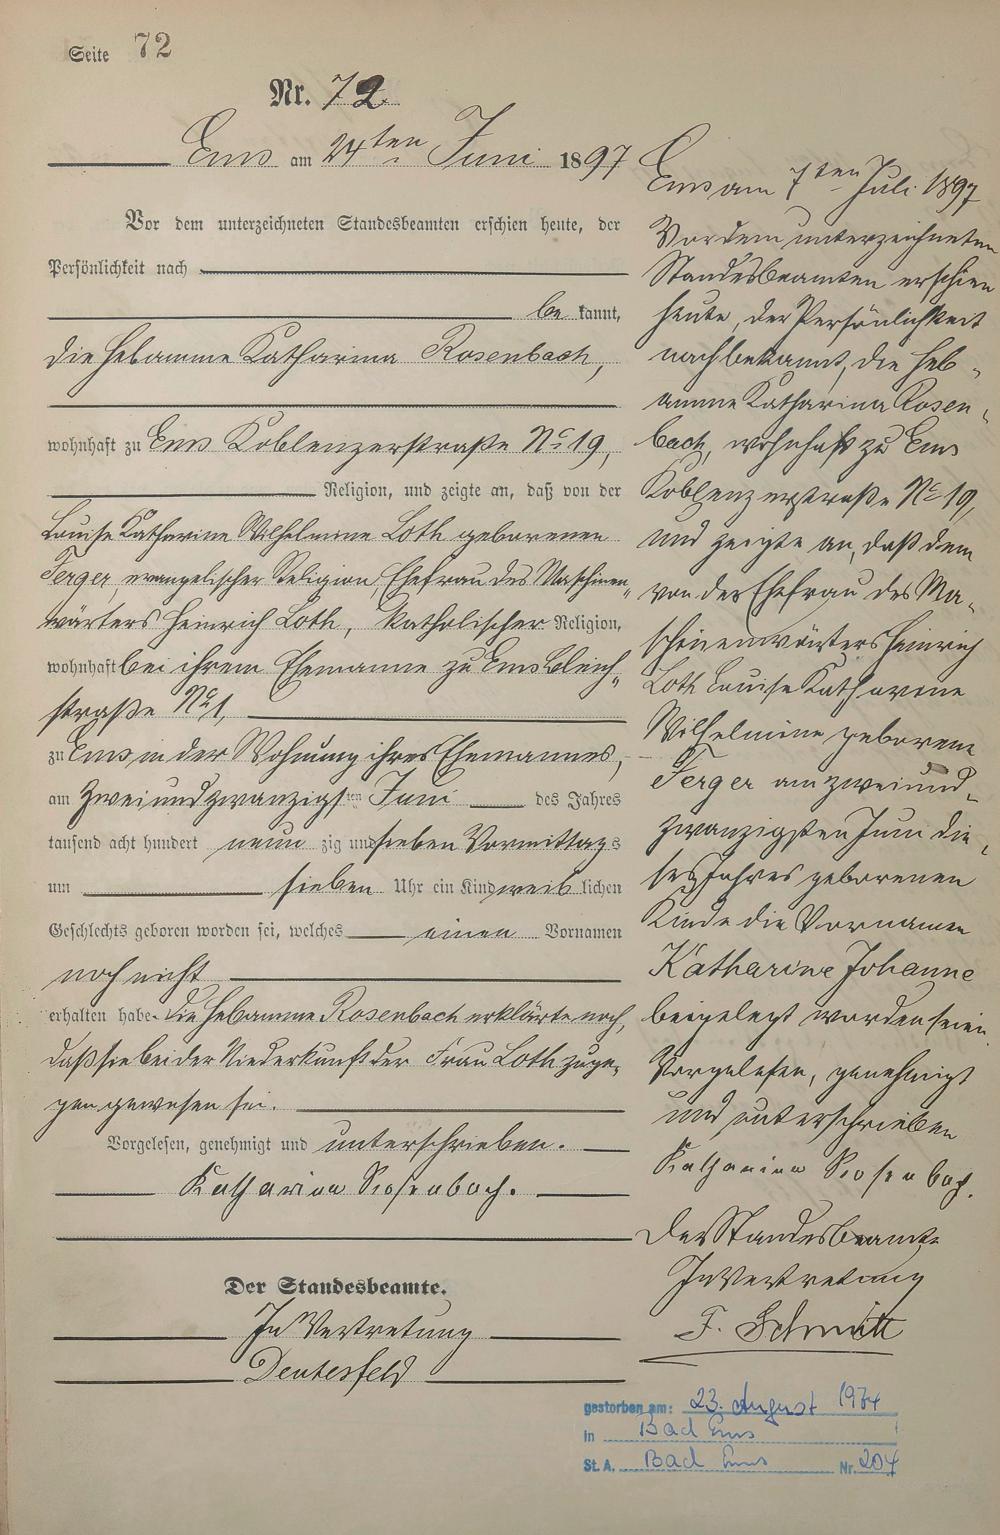 Seite 72
Nr. 72.
Ems am 24ten Juni 1897
Vor dem unterzeichneten Standesbeamten erschien heute, der
Persönlichkeit nach
be kannt,
die Hebamme Katharina Rosenbach,
wohnhaft zu Ems Koblenzerstraße No 19,
Religion, und zeigte an, daß von der
Louise Katharine Wilhelmine Loth geborenen
Ferger, evangelischer Religion, Ehefrau des Maschinen„
wärters Heinrich Loth, katholischer Religion,
wohnhaft bei ihrem Ehemanne zu Ems Bleich„
straße No 1,
zu Ems in der Wohnung ihres Ehemannes,
am zweiundzwanzigsten Juni des Jahres
tausend acht hundert neun zig und sieben Vormittags
um sieben Uhr ein Kind weib lichen
Geschlechts geboren worden sei, welches einen Vornamen
noch nicht
erhalten habe. Die Hebamme Rosenbach erklärte noch,
daß sie bei der Niederkunft der Frau Loth zuge„
gen gewesen sei.
Vorgelesen, genehmigt und unterschrieben.
Katharina Rosenbach.
Der Standesbeamte.
In Vertretung
Deutesfeld
Ems am 7ten Juli 1897
Vor dem unterzeichneten
Standesbeamten erschien
heute, der Persönlichkeit
nach bekannt, die Heb„
amme Katharina Rosen„
bach, wohnhaft zu Ems
Koblenzerstraße No 19,
und zeigte an, daß dem
von der Ehefrau des Ma„
schinenwärters Heinrich
Loth Louise Katharine
Wilhelmine geborene
Ferger am zweiund„
zwanzigsten Juni die„
ses Jahres geborenen
Kinde die Vornamen
Katharine Johanne
beigelegt worden seien.
Vorgelesen, genehmigt
und unterschrieben
Katharina Rosenbach.
Der Standesbeamte
In Vertretung
F. Schmitt
gestorben am: 23. August 1974
in Bad Ems
St. A. Bad Ems Nr. 204